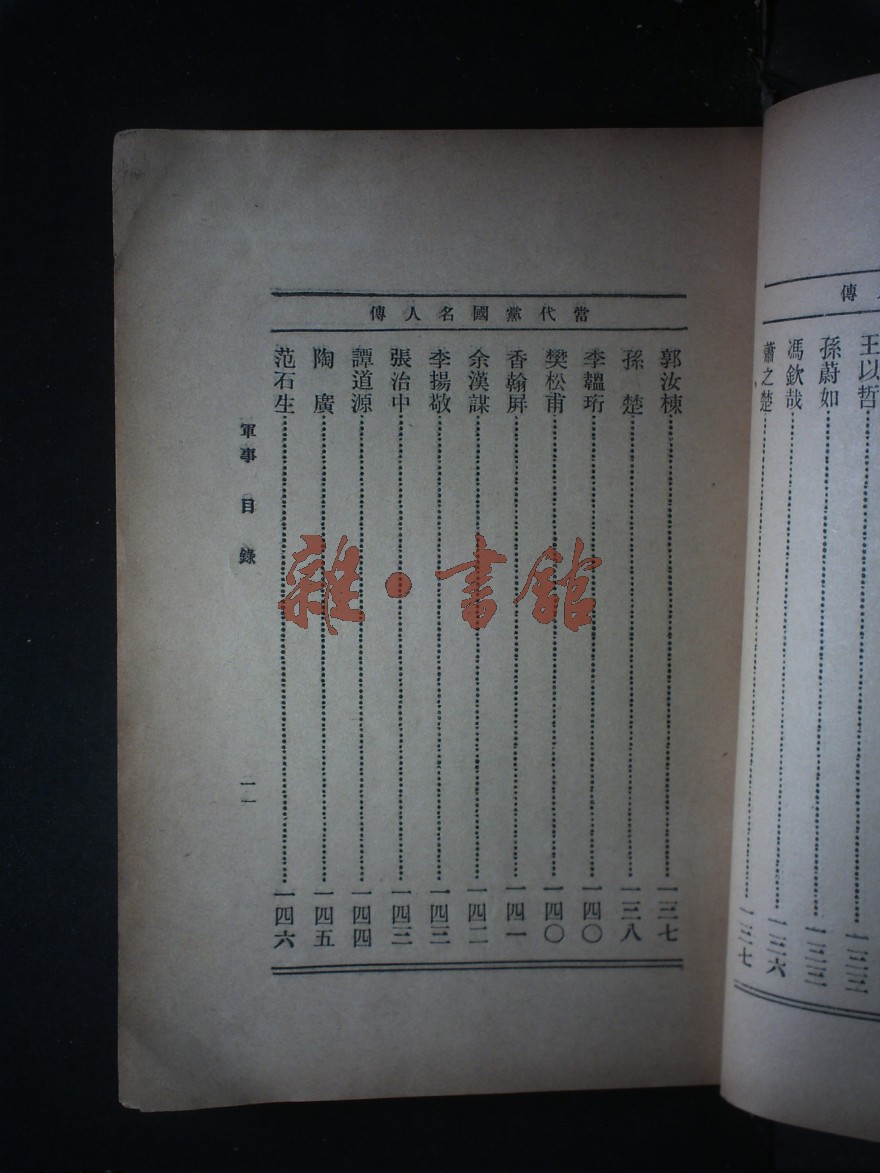 傳
王以哲……一三三
孫蔚如……一三三
馮欽哉……一三六
蕭之楚……一三七
當代黨國名人傳
郭汝棟……一三七
孫 楚……一三八
李韞珩……一四〇
樊松甫……一四〇
香翰屏……一四一
余漢謀……一四二
李揚敬……一四三
張治中……一四三
譚道源……一四四
陶 廣……一四五
范石生……一四六
軍事 目錄 一一
雜·書館